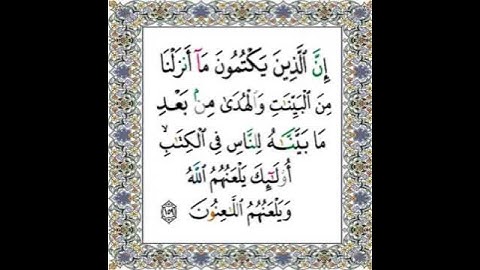 إِنَّ ٱلَّذِينَ يَكْتُمُونَ مَآ أَنزَلْنَا
مِنَ ٱلْبَيِّنَـٰتِ وَٱلْهُدَىٰ مِنۢ بَعْدِ
مَا بَيَّنَّـٰهُ لِلنَّاسِ فِى ٱلْكِتَـٰبِ ۙ
أُو۟لَـٰٓئِكَ يَلْعَنُهُمُ ٱللَّهُ
وَيَلْعَنُهُمُ ٱللَّـٰعِنُونَ ١٥٩